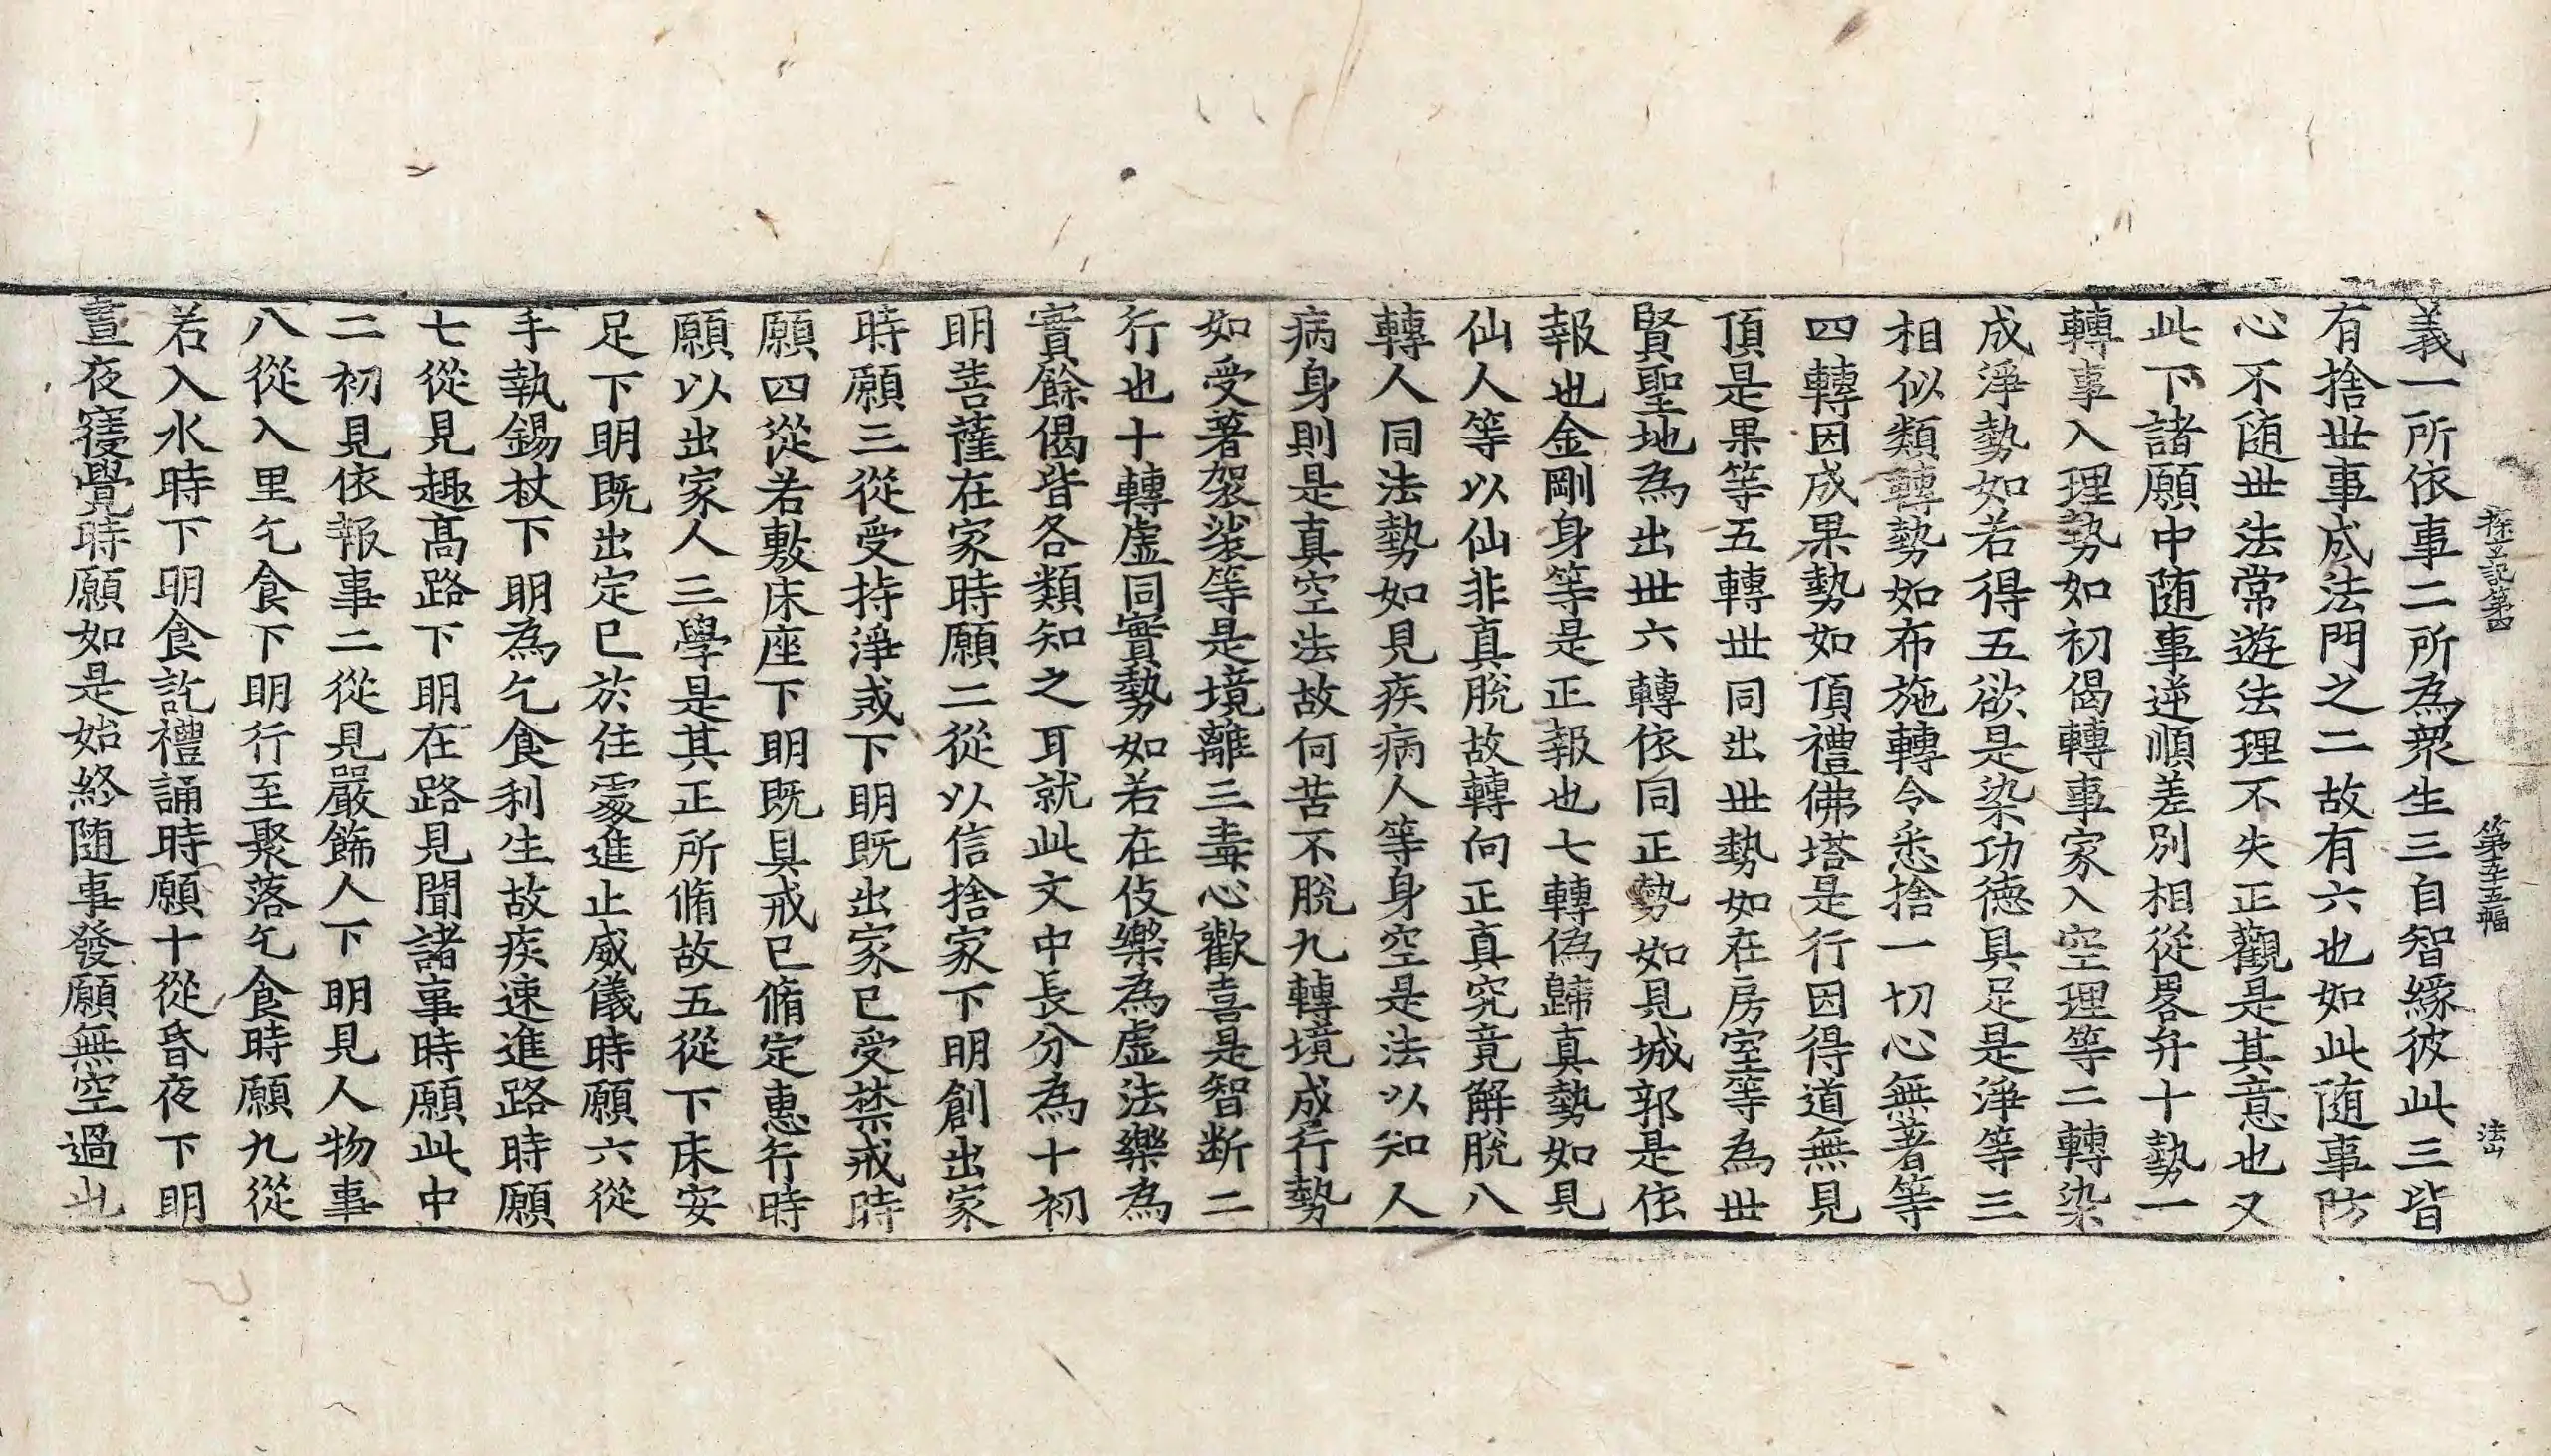 探玄記第四 第五五幅 法山
義一所依事二所為衆生三自智緣彼此三皆
有捨世事成法門之二故有六也如此随事防
心不随世法常遊法理不失正觀是其意也又
此下諸願中随事逆順差別相從畧弁十勢一
轉事入理勢如初偈轉事家入空理等二轉染
成淨勢如若得五欲是染功德具足是淨等三
相似類轉勢如布施轉令悉捨一切心無著等
四轉因成果勢如頂禮佛塔是行因得道無見
頂是果等五轉世同出世勢如在房室等為世
賢聖地為出世六轉依同正勢如見城郭是依
報也金剛身等是正報也七轉偽歸真勢如見
仙人等以仙非真脫故轉向正真究竟解脫八
轉人同法勢如見疾病人等身空是法以知人
病身則是真空法故何苦不脫九轉境成行勢
如受著袈裟等是境離三毒心歡喜是智断二
行也十轉虛同實勢如若在伎樂為虛法樂為
實餘偈皆各類知之耳就此文中長分為十初
明菩薩在家時願二從以信捨家下明創出家
時願三從受持淨戒下明既出家已受禁戒時
願四從若敷床座下明既具戒已脩定惠行時
願以出家人三學是其正所脩故五從下床安
足下明既出定已於住處進止威儀時願六從
手執錫杖下明為乞食利生故疾速進路時願
七從見趣髙路下明在路見聞諸事時願此中
二初見依報事二從見嚴飾人下明見人物事
八從入里乞食下明行至聚落乞食時願九從
若入水時下明食訖禮誦時願十從昏夜下明
晝夜寤覺時願如是始終随事發願無空過也